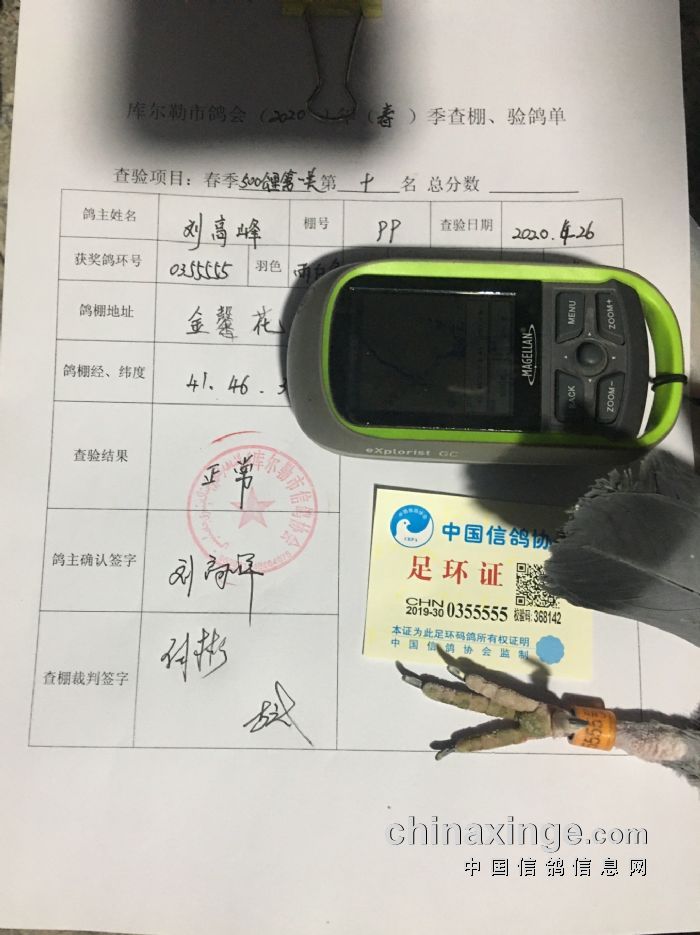 库尔勒市鸽会（2020）年（春）季查棚、验鸽单
查验项目：春季500公里第一关第十名 总分数
鸽主姓名 刘高峰 棚号 PP 查验日期 2020.4.26
获奖鸽环号 0355555 羽色 雨白
鸽棚地址 金馨花
鸽棚经、纬度 41.46.
查验结果 正常
库尔勒市信鸽协会
鸽主确认签字 刘高峰
查棚裁判签字
MAGELLAN
MENU
ZOOM+
BACK
ZOOM-
eXplorist GC
中国信鸽协
足环证
CHN
2019-30 0355555 校验码: 368142
本证为此足环码鸽所有权证明
中国信鸽协会监制
chinaxinge.com
中国信鸽信息网